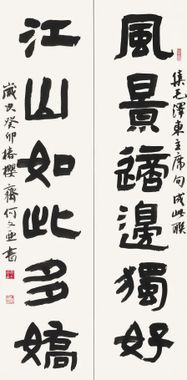 風景這邊獨好
集毛澤東主席句成此聯
江山如此多嬌
歲次癸卯椿櫻齋何文垂書